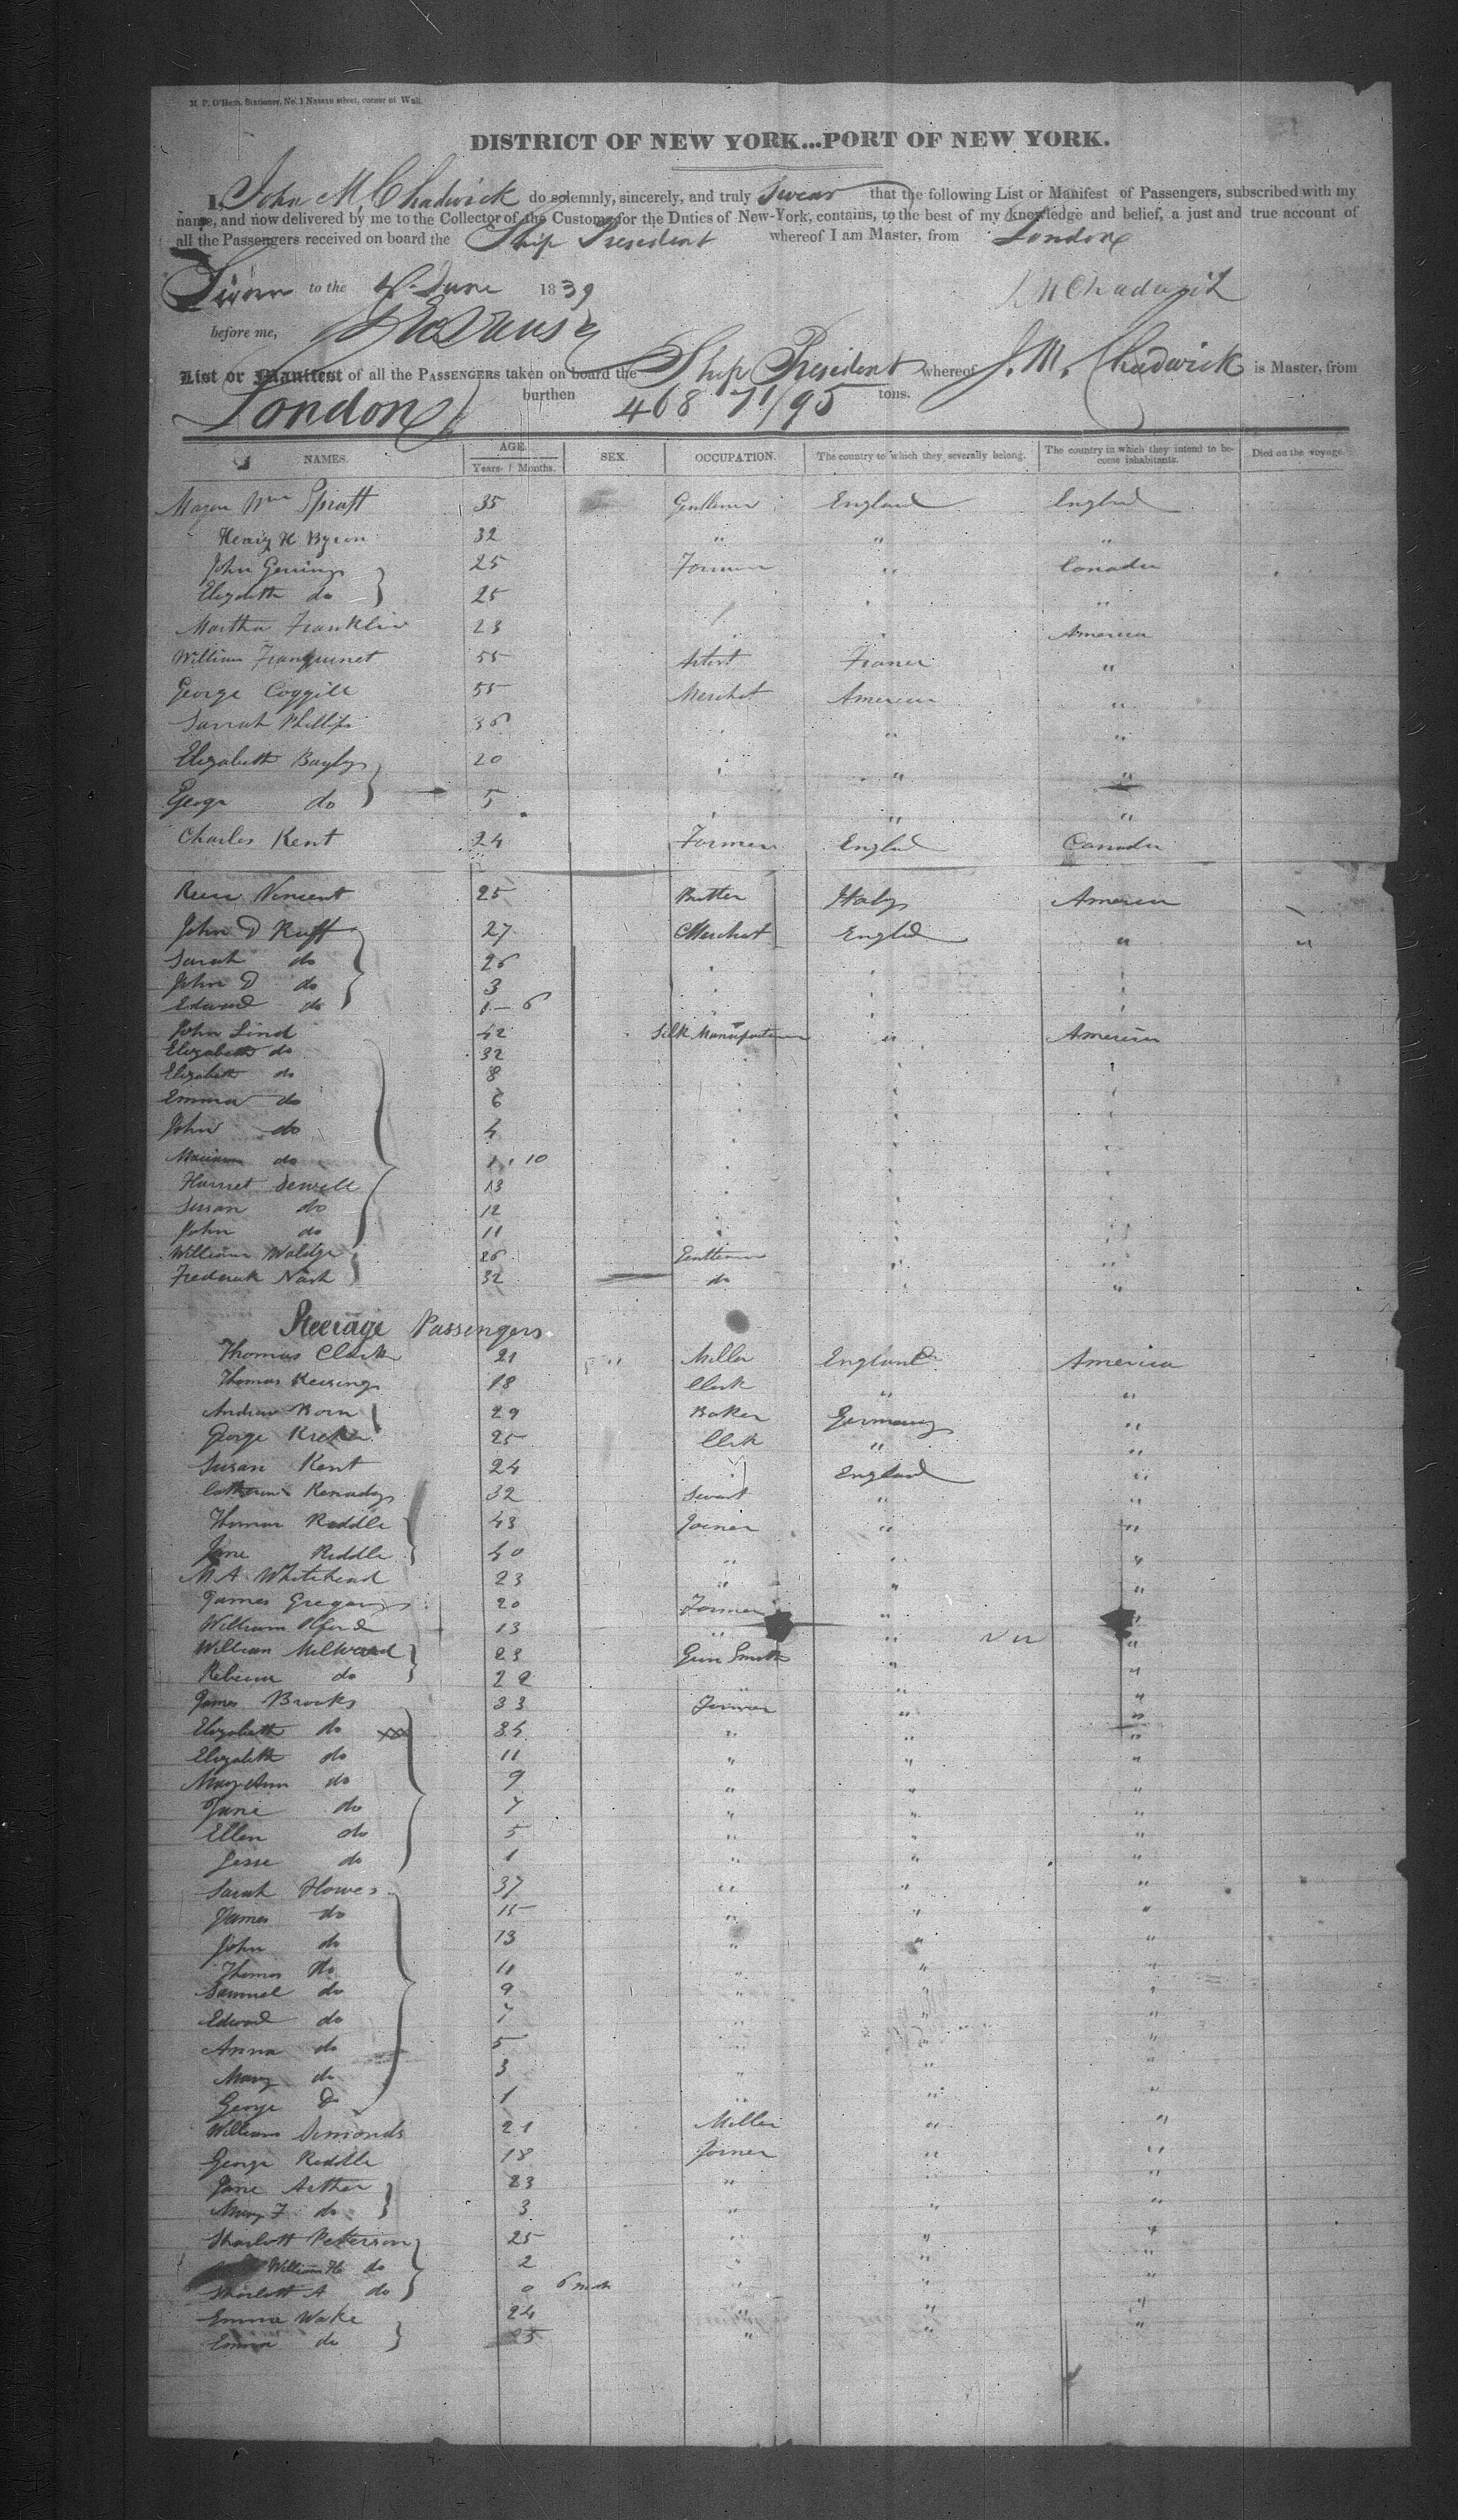 M. P. O'Hern, Stationer, No. 1 Nassau street, corner of Wall.
DISTRICT OF NEW YORK...PORT OF NEW YORK.
I, John M. Chadwick do solemnly, sincerely, and truly Swear that the following List or Manifest of Passengers, subscribed with my
name, and now delivered by me to the Collector of the Customs for the Duties of New-York, contains, to the best of my knowledge and belief, a just and true account of
all the Passengers received on board the Ship President whereof I am Master, from London
Sworn to the June 1839 J M Chadwick
before me,
List or Manifest of all the PASSENGERS taken on board the Ship President whereof J. M. Chadwick is Master, from
London burthen 468 71/95 tons.
NAMES. AGE. Years. Months. SEX. OCCUPATION. The country to which they severally belong. The country in which they intend to become inhabitants. Died on the voyage.
Wm Spratt 35 England England
Henry H Byron 32 " " "
John 25 "
Elizabeth do 25 "
Martha Franklin 23 America
William Franquinet 55 Artist France "
George Coggill 55 America "
Sarrah Phillips 36 " "
Elizabeth Bayly 20 " "
George do 5 " "
Charles Kent 24 Farmer Engld Canada
Vincent 25 Italy America
John D Ruff 27 Merchant Engld " "
Sarah do 26
John D do 3
Edward do 1 - 6
John Lind 42 Silk " America
Elizabeth do 32
Elizabeth do 8
Emma do 6
John do 4
do 1 . 10
Harriet Sewell 13
Susan do 12
John do 11
William 26 Gentleman "
Frederick Nash 32 do "
Steerage Passengers
Thomas Clark 21 " Miller England America
Thomas 18 Clerk " "
Andrew Born 29 Baker Germany "
George 25 Clerk " "
Susan Kent 24 England "
Kenady 32 " "
Thomas Riddle 43 Joiner " "
Jane Riddle 40 " " "
M A Whitehead 23 " " "
James Gregory 20 Farmer " "
William 13 " " "
William Millward 23 Gun Smith " "
Rebecca do 22 " " "
James Brooks 33 Farmer " "
Elizabeth do 34 " " "
Elizabeth do 11 " " "
Mary Ann do 9 " " "
Jane do 7 " " "
Ellen do 5 " " "
Jesse do 1 " " "
Sarah Howes 37 " " "
James do 15 " " "
John do 13 " " "
Thomas do 11 " " "
Samuel do 9 " " "
Edward do 7 " " "
Anna do 5 " " "
Mary do 3 " " "
George Do 1 " " "
William Simonds 21 Miller " "
George Riddle 18 Joiner " "
Jane Arther 23 " " "
Mary F do 3 " " "
Sharlott Petterson 25 " " "
William H do 2 " " "
Sharlott A do 0 6 " " "
Emma Wake 24 " " "
Emma do 25 " " "